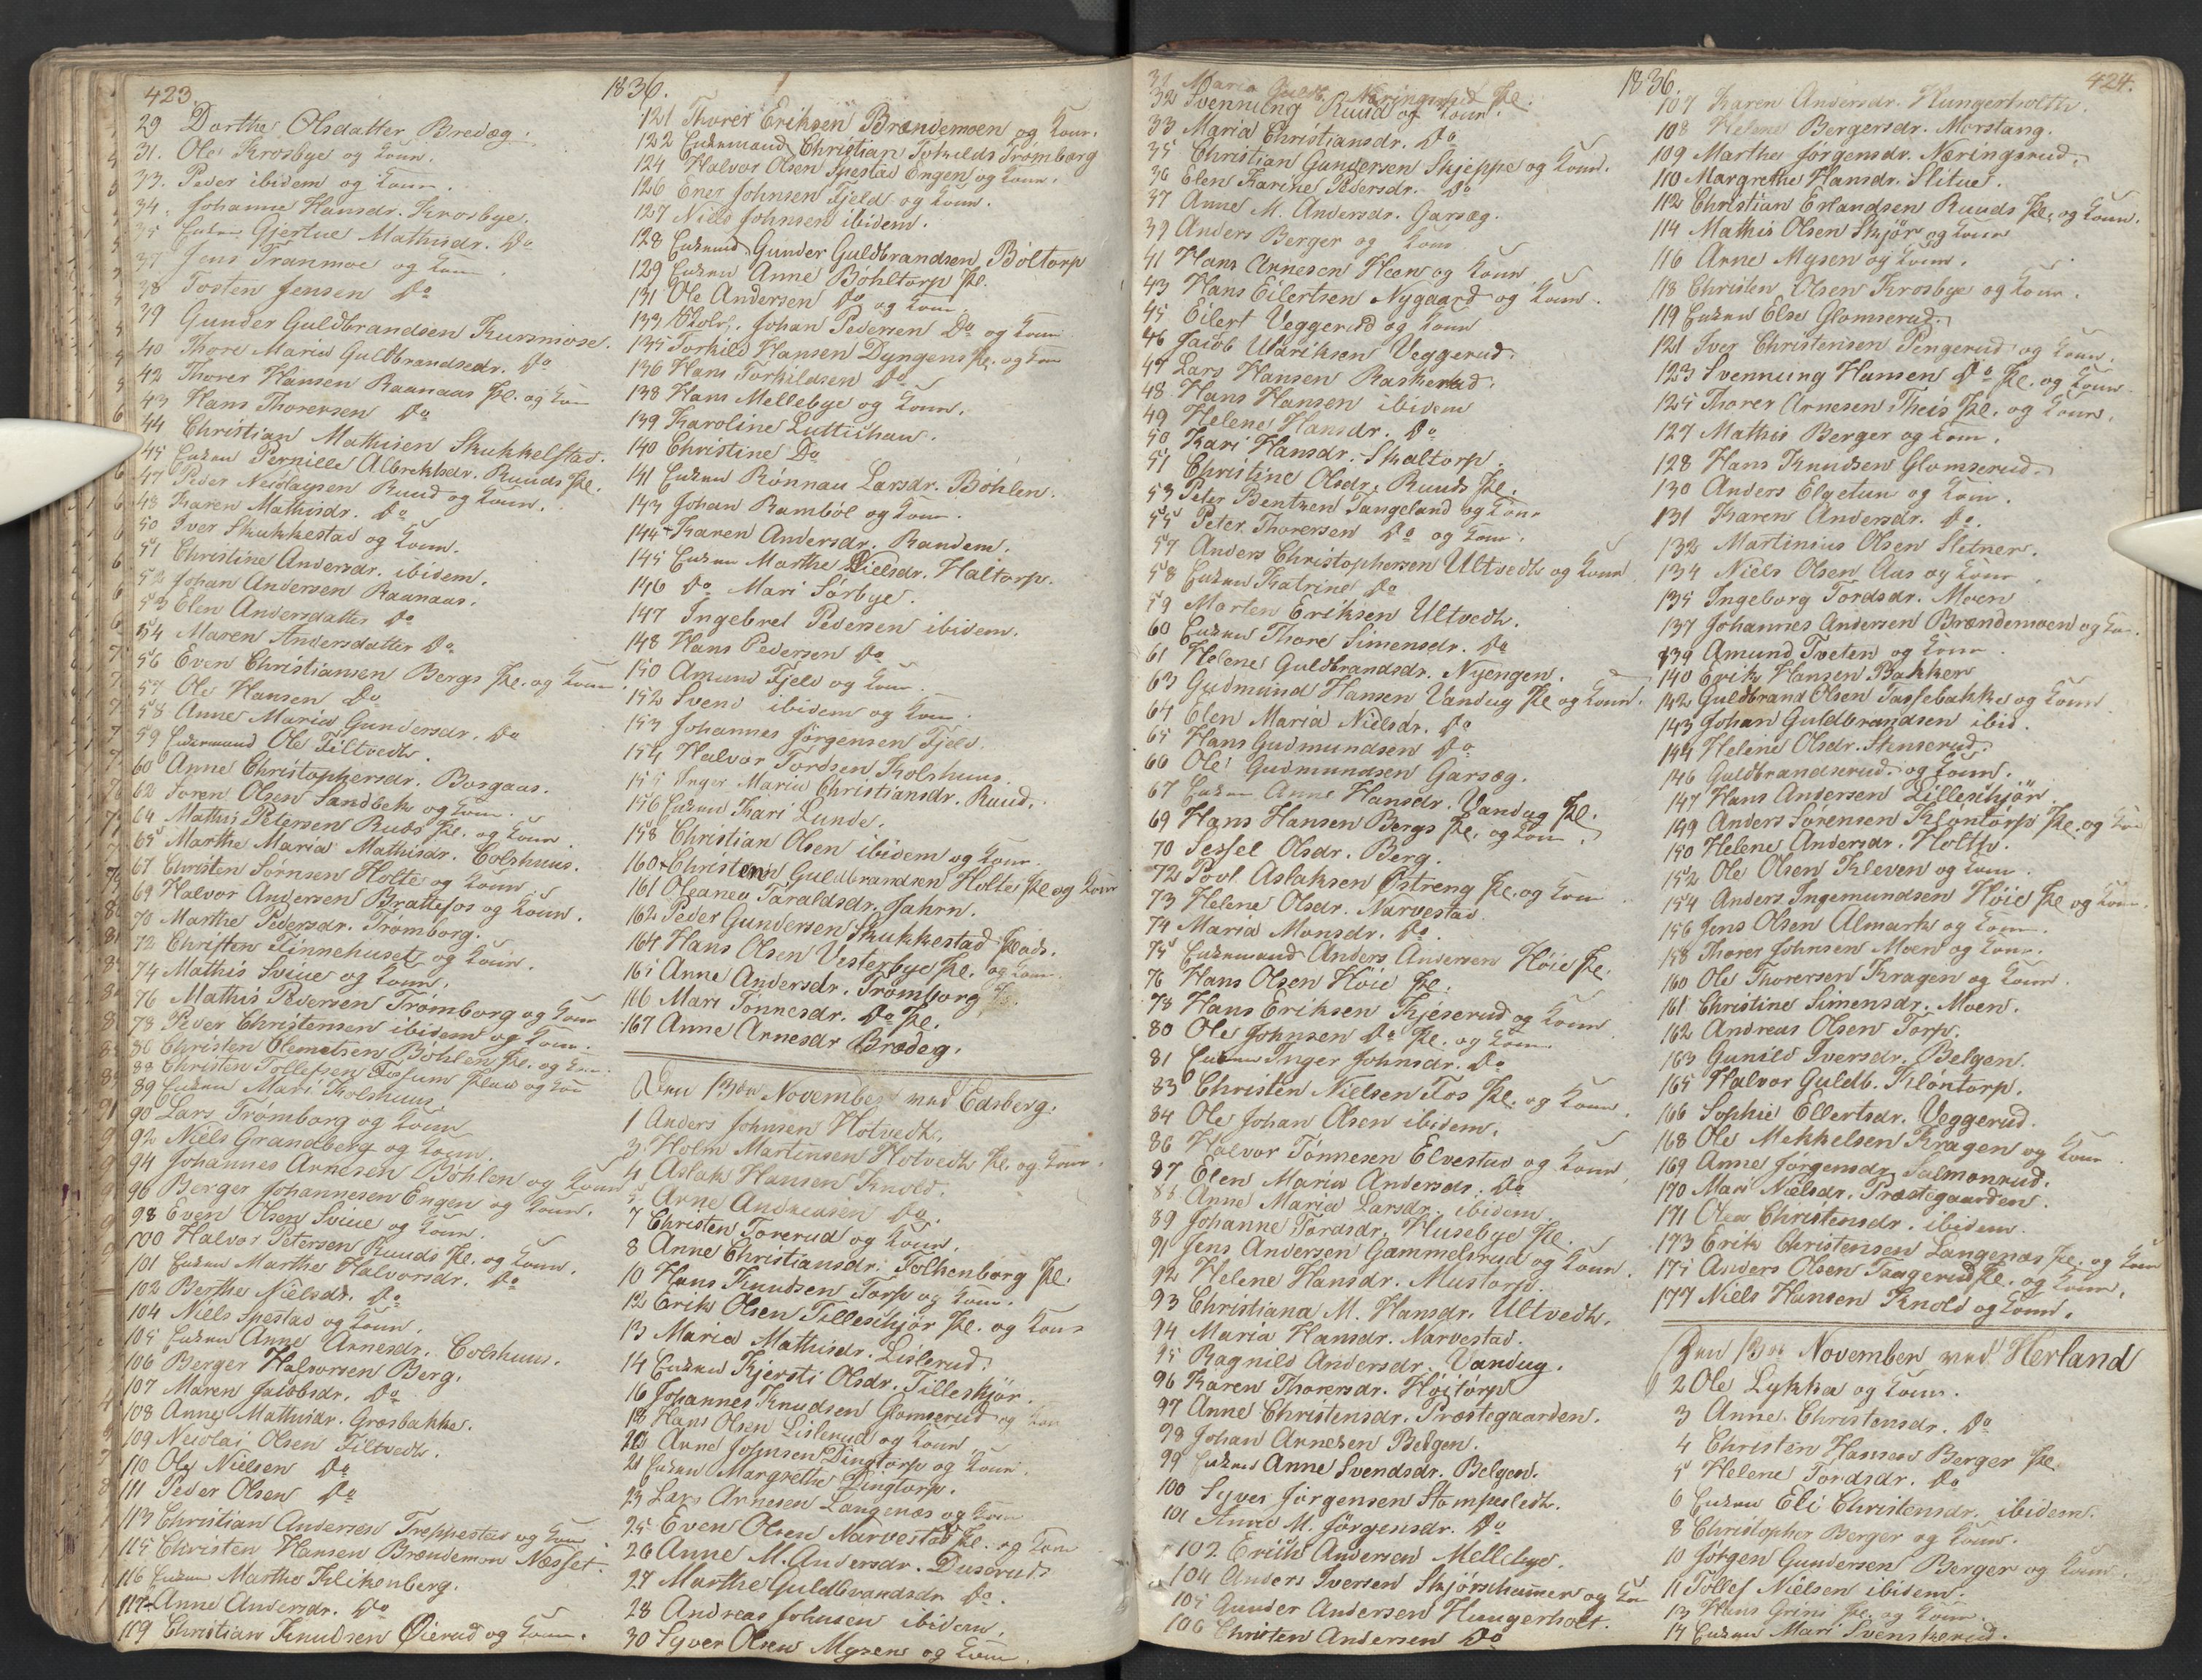 423.
1836.
29 Dorthe Olsdatter Bredæg.
31. Ole Krosbye og Kone.
33. Peder ibidem og Kone.
34. Johanne Hansdr. Krosbye.
35 Enken Gjertue Mathisdr. Do
37 Jens Tranmoe og Kone.
38 Tosten Jensen Do
39 Gunder Guldbrandsen Kursmose.
40 Thore Maria Guldbrandsdr. Do
42 Thorer Hansen Raanaas Pl. og Kone
43 Hans Thorersen Do
44 Christian Mathisen Skukkelstad.
45 Enken Pernille Albrektsdr. Ruuds Pl.
47 Peder Neiolaysen Ruud og Kone.
48 Karen Mathisdr. Do
50 Iver Skukkestad og Kone.
51 Christine Andersdr. ibidem.
52 Johan Andersen Raanaas.
53 Elen Andersdatter Do
54 Maren Andersdatter Do
56 Even Christiansen Bergs Pl. og Kone
57 Ole Hansen Do
58 Anne Maria Gundersdr. Do
59 Enkemand Ole Tiltvedt.
60 Anne Christophersdr. Borgaas.
62 Søren Olsen Sandbek og Kone.
64 Mathis Petersen Ruds Pl. og Kone
65 Marthe Maria Mathisdr. Colshuus.
67 Christen Sørnsen Holte og Kone.
69 Halvor Andersen Brattefos og Kone.
70 Marthe Pedersdr. Trømborg.
72 Christen Finnehuset og Kone.
74 Mathis Sviue og Kone.
76 Mathis Pedersen Trømborg og Kone
78 Peder Christensen ibidem og Kone.
86 Christen Clemetsen Böhlen Pl. og Kone.
88 Christen Tollefsen Fosum og Kone
89 Enken Mari Kolshuus.
90 Lars Trømborg og Kone
92 Niels Grandberg og Kone.
94 Johannes Arnesen Bøhlen og Kone
96 Berger Johannesen Engen og Kone.
98 Even Olsen Sviue og Kone.
100 Halvor Petersen Ruuds Pl. og Kone.
101 Enken Marthe Halvorsdr. Do
102 Berthe Nielsdr. Do
104 Niels Spestad og Kone.
105 Enken Anne Arnesdr. Colshuus.
106 Berger Halvorsen Berg.
107 Maren Jacobsdr. Do
108 Anne Mathisdr. Græsbakke.
109 Neiolai Olsen Tiltvedt.
110 Ole Nielsen Do
111 Peder Olsen Do
113 Christian Andersen Treppestad og Kone
115 Christen Hansen Brændemon Næsset.
116 Enken Marthe Klikenberg.
117 Anne Andersdr. Do
119 Christian Knudsen Øierud og Kone.
121 Thorer Eriksen Brændemoen og Kone.
122 Enkemand Christian Torkilds Tromborg
124 Halvor Olsen Spestad Engen og Kone.
126 Ener Johnsen Fjeld og Kone.
127 Niels Johnsen ibidem.
128 Enkemd. Gunder Guldbrandsen Böltorp
129 Enken Anne Böhltorp Pl.
131 Ole Andersen Do og Kone
133 Skolh. Johan Pedersen Do og Kone
135 Torkild Hansen Dyngens Pl. og Kone
136 Hans Torkildsen Do
138 Hans Mellebye og Kone.
139 Karoline Luttichau.
140 Christine Do
141 Enken Rönnau Larsdr. Böhlen.
143 Johan Ramböl og Kone.
144 Karen Andersdr. Randem.
145 Enken Marthe Nielsdr. Haltorp.
146 Do Mari Sörbye.
147 Ingebret Pedersen ibidem.
148 Hans Pedersen Do
150 Amund Fjeld og Kone.
152 Svend ibidem og Kone.
153 Johannes Jörgensen Fjeld.
154 Halvor Tordsen Kolshuus.
155 Inger Maria Christiansdr. Ruud.
156 Enken Kari Lunde.
158 Christian Olsen ibidem og Kone.
160 Christen Guldbrandsen Holte Pl og Kone
161 Oleanea Taraldsdr. Jahrn.
162 Peder Gundersen Skukkestad Plads.
164 Hans Olsen Vesterbye Pl. og Kone.
165 Anne Andersdr. Trømborg Pl.
166 Mari Tönnesdr. Do Pl.
167 Anne Arnesdr Brædeg.
Den 13de November ved Edsberg.
1 Anders Johnsen Hotvedt.
3. Holm Martinsen Hotvedt Pl. og Kone.
4 Aslak Hansen Knold.
5 Arne Andreasen Do.
7 Christen Torerud og Kone.
8 Anne Christiansdr. Folkenborg Pl.
10 Hans Knudsen Torp og Kone.
12 Erik Olsen Tilleskjör Pl. og Kone
13 Maria Mathisdr. Lislerud.
14 Enken Kjersti Olsdr. Tilleskjör.
16 Johannes Knudsen Glomserud og Kone
18 Hans Olsen Lislerud og Kone
20 Arne Johnsen Dingtorp og Kone.
21 Enken Margrethe Dingtorp.
23 Lars Arnesen Langenæs og Kone
25 Even Olsen Narvestad Pl. og Kone
26 Anne M. Andersdr. Duserud.
27 Marthe Guldbrandsdr. Do.
28 Andreas Johnsen ibidem.
30 Syver Olsen Mysens og Kone.
1836.
424.
31 Maria Næringsrud Pl.
32 Svennung Ruud og Kone.
33 Maria Christiansdr. Do
35 Christian Gundersen Skjeppe og Kone.
36 Elen Karine Pedersdr. Do
37 Anne M. Andersdr. Garsæg.
39 Anders Berger og Kone
41 Hans Arnesen Heen og Kone
43 Hans Eilertsen Nygaard og Kone.
45 Eilert Veggerud og Kone
46 Jacob Ulriksen Veggerud.
47 Lars Hansen Raskerud.
48 Hans Hansen ibidem
49 Helene Hansdr. Do
50 Kari Hansdr. Skaltorp.
51 Christine Olsdr. Ruuds Pl.
53 Peter Bentsen Tangeland og Kone
55 Peter Thorersen Do og Kone.
57 Anders Christophersen Ultvedt og Kone
58 Enken Katrine Do
59 Morten Eriksen Ultvedt.
60 Enken Thore Simensdr. Do
61 Helene Guldbrandsdr. Nyengen.
63 Gudmund Hansen Vandug Pl og Kone.
64 Elen Maria Nielsdr. Do
65 Hans Gudmundsen Do
66 Ole Gudmundsen Garsæg.
67 Enken Anne Hansdr. Vandug Pl.
69 Hans Hansen Bergs Pl. og Kone.
70 Sessel Olsdr. Berg.
72 Povl Aslaksen Østreng Pl. og Kone
73 Helene Olsdr. Narvestad
74 Maria Monsdr. Do.
75 Enkemand Anders Andersen Höie Pl.
76 Hans Olsen Höie Pl.
78 Hans Eriksen Kjeserud og Kone
80 Ole Johnsen Do Pl. og Kone
81 Enken Inger Johnsdr. Do
83 Christen Nielsen Fos Pl. og Kone.
84 Ole Johan Olsen ibidem.
86 Halvor Tönnesen Elvestad og Kone
87 Elen Maria Andersdr. Do
88 Anne Maria Larsdr. ibidem
89 Johanne Tordsdr. Husebye Pl.
91 Jens Andersen Gammelsrud og Kone
92 Helene Hansdr. Mustorp.
93 Christiana M. Hansdr. Ultvedt.
94 Maria Hansdr. Narvestad.
95 Ragnild Andersdr. Vandug.
96 Karen Thorersdr. Höitorp
97 Anne Christensdr. Præstegaarden.
98 Johan Arnesen Belgen.
99 Enken Anne Svendsdr. Belgen.
100 Syver Jörgensen Stomperledt.
101 Anne M. Jörgensdr. Do
102 Erich Andersen Mellebye.
104 Anders Iversen Skjörshammer og Kone
105 Gunder Andersen Hungerholt.
106 Christen Andersen Do
107 Karen Andersdr. Hungerholth.
108 Helene Bergersdr. Morstang.
109 Marthe Jörgensdr. Næringsrud.
110 Margrethe Hansdr. Slitue.
112 Christian Erlandsen Ruuds Pl. og Kone.
114 Mathis Olsen Skjör og Kone
116 Arne Mysen og Kone.
118 Christen Olsen Krosbye og Kone.
119 Enken Else Glomserud.
121 Iver Christensen Pengerud og Kone.
123 Svennung Hansen Do Pl. og Kone
125 Thorer Arnesen Theis Pl. og Kone.
127 Mathis Berger og Kone.
128 Hans Knudsen Glomserud.
130 Anders Elgetun og Kone.
131 Karen Andersdr. Do.
132 Martinius Olsen Sletner.
134 Niels Olsen Aas og Kone
135 Ingeborg Tordsdr. Moen
137 Johannes Andersen Brændemoen og Kone.
139 Amund Tveten og Kone
140 Erik Hansen Bakken
142 Guldbrand Olsen Tassebakke og Kone
143 Johan Guldbrandsen ibid.
144 Helene Olsdr. Stenserud.
146 Guldbrandserud og Kone.
147 Hans Andersen Lilleskjör
149 Anders Sörensen Klöntorp Pl. og Kone
150 Helene Andersdr. Holth.
152 Ole Olsen Kleven og Kone
154 Anders Ingemundsen Höie Pl og Kone.
156 Jens Olsen Almark og Kone.
158 Thorer Johnsen Moen og Kone.
160 Ole Thorersen Kragen og Kone.
161 Christine Simensdr. Moen.
162 Andreas Olsen Torp.
163 Gunild Iversdr. Belgen.
165 Halvor Guldb. Klöntorp.
166 Sophie Ellertsdr. Veggerud.
168 Ole Mekkelsen Kragen og Kone
169 Anne Jörgensdr. Salmonrud.
170 Mari Nielsdr. Præstegaarden.
171 Olea Christensdr. ibidem.
173 Erik Christensen Langenæs Pl. og Kone
175 Anders Olsen Taugerud Pl. og Kone.
177 Niels Hansen Knold og Kone.
Den 13de November ved Herland
2 Ole Lykka og Kone.
3 Anne Christensdr. Do
4 Christen Hansen Berger Pl.
5 Helene Tordsdr. Do
6 Enken Eli Christensdr. ibidem.
8 Christopher Berger og Kone.
10 Jörgen Gundersen Berger og Kone
11 Tollef Nielsen ibidem.
13 Hans Grini Pl. og Kone.
14 Enken Mari Svenskerud.